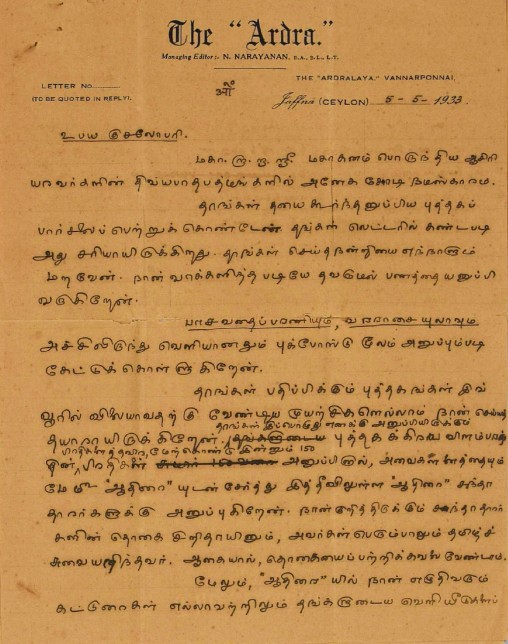 The "Ardra."
Managing Editor:- N. NARAYANAN, B.A., B.L., L.T.
THE "ARDRALAYA," VANNARPONNAI,
LETTER No.
(TO BE QUOTED IN REPLY).
ஓம்
Jaffna (CEYLON) 5-5-1933
உபய குசலோபரி.
மகா-ரா-ரா-ஸ்ரீ மகாகனம் பொருந்திய ஆசிரி
யரவர்களின் திவ்யபாதபத்மங்களில் அனேக கோடி நமஸ்காரம்.
தாங்கள் தயை கூர்ந்தனுப்பிய புத்தகப்
பார்சலைப் பெற்றுக் கொண்டேன். தங்கள் லெட்டரில் கண்டபடி
அது சரியாயிருக்கிறது. தாங்கள் செய்த நன்றியை எந்நாளும்
மறவேன். நான் வாக்களித்த படியே தவறாமல் பணத்தையனுப்பி
வருகிறேன்.
பாசவதைப்பரணியும், உலாவும்
அச்சிலிருந்து வெளியானதும் புக்போஸ்டு மூலம் அனுப்பும்படி
கேட்டுக் கொள்ளுகிறேன்.
தாங்கள் பதிப்பிக்கும் புத்தகங்கள் இவ்
வூரில் விலையாவதற்கு வேண்டிய முயற்சிகளெல்லாம் நான் செய்யத்
தயாராயிருக்கிறேன். தாங்கள் இப்பொழுது எனக்கு அனுப்பியிருக்கும்
புத்தகக் விளம்பரத்
தின் பிரதிகள் அனுப்பினால், அவைகளனைத்தையும்
மேற்கொண்டு இன்னும் 150
மே மீ "ஆதிரை" யுடன் சேர்த்து இத்தீவிலுள்ள "ஆதிரை" சந்தா
தாரர்களுக்கு அனுப்புகிறேன். நான் குறித்திருக்கும் சந்தாதாரர்
களின் தொகை சிறிதாயினும், அவர்கள் பெரும்பாலும் தமிழ்ச்
சுவையறிந்தவர். ஆகையால், தொகையைப்பற்றிக் கவலை வேண்டாம்.
மேலும், "ஆதிரை" யில் நான் எழுதிவரும்
கட்டுரைகள் எல்லாவற்றிலும் தங்களுடைய வெளியீடுகளைப்